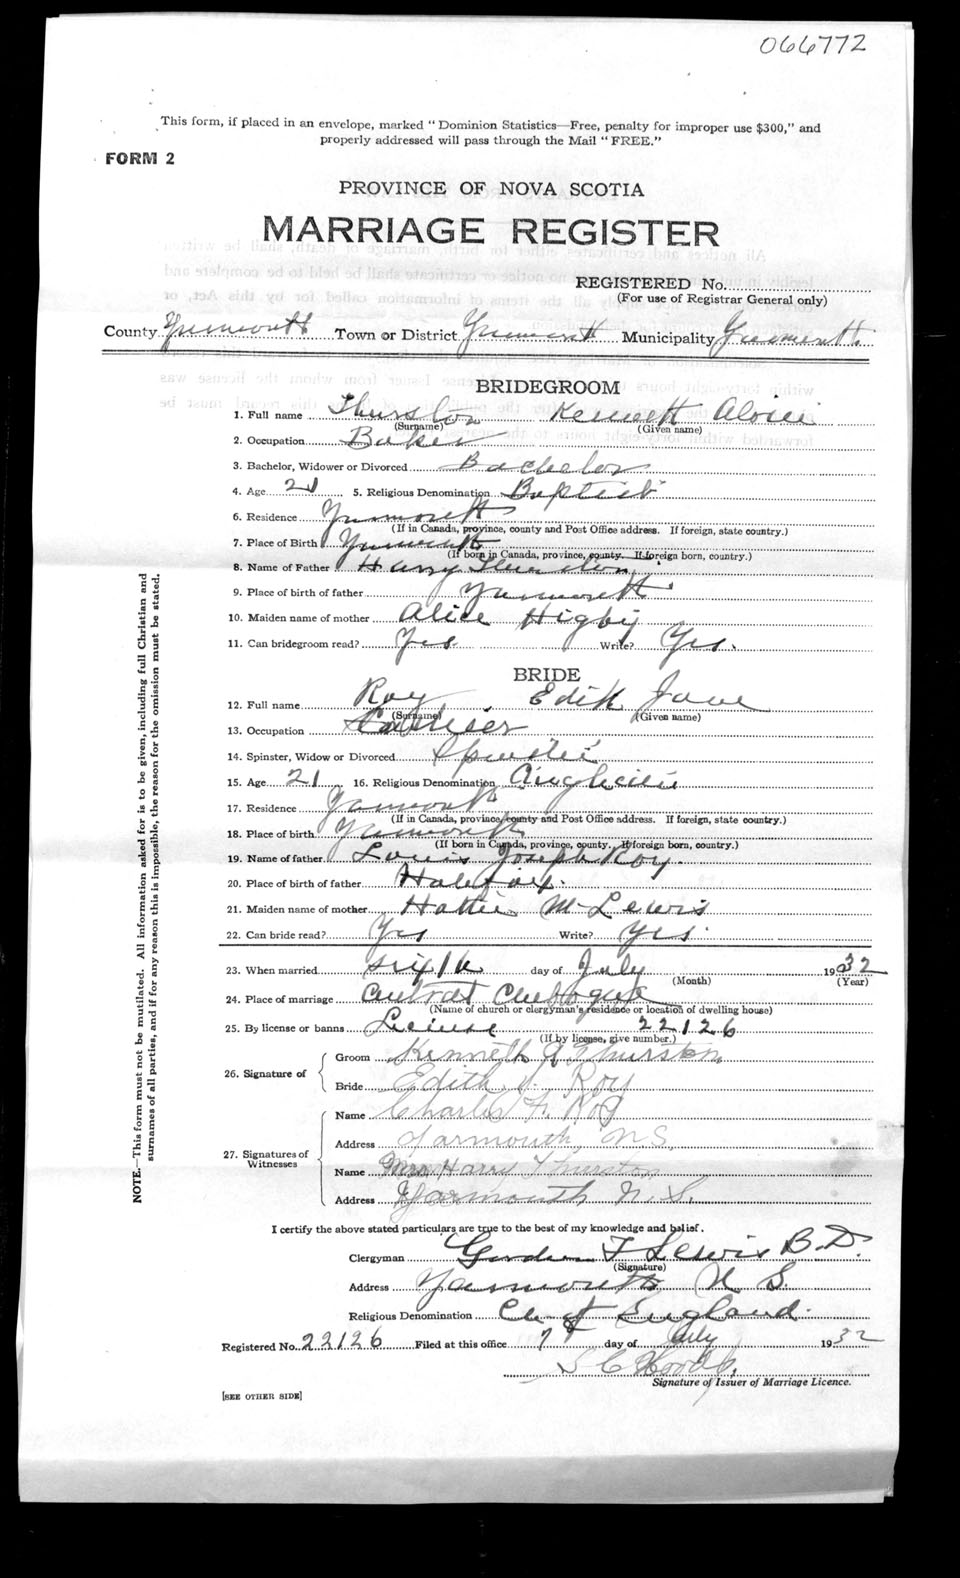 066772
This form, if placed in an envelope, marked "Dominion Statistics—Free, penalty for improper use $300," and
properly addressed will pass through the Mail "FREE."
FORM 2
PROVINCE OF NOVA SCOTIA
MARRIAGE REGISTER
REGISTERED No.
(For use of Registrar General only)
County Yarmouth Town or District Yarmouth Municipality Yarmouth
BRIDEGROOM
1. Full name Thurston Kenneth
(Surname) (Given name)
2. Occupation Baker
3. Bachelor, Widower or Divorced Bachelor
4. Age 21 5. Religious Denomination Baptist
6. Residence Yarmouth
(If in Canada, province, county and Post Office address. If foreign, state country.)
7. Place of Birth Yarmouth
(If born in Canada, province, county. If foreign born, country.)
8. Name of Father Harry Thurston
9. Place of birth of father Yarmouth
10. Maiden name of mother Alice Higby
11. Can bridegroom read? Yes Write? Yes.
BRIDE
12. Full name Roy Edith Jane
(Surname) (Given name)
13. Occupation
14. Spinster, Widow or Divorced Spinster
15. Age 21 16. Religious Denomination Anglican
17. Residence Yarmouth
(If in Canada, province, county and Post Office address. If foreign, state country.)
18. Place of birth Yarmouth
(If born in Canada, province, county. If foreign born, country.)
19. Name of father Louis Joseph Roy.
20. Place of birth of father Halifax.
21. Maiden name of mother Hattie M Lewis
22. Can bride read? Yes Write? Yes.
23. When married sixth day of July 1932
(Month) (Year)
24. Place of marriage Central Chebogue
(Name of church or clergyman's residence or location of dwelling house)
25. By license or banns License 22126
(If by license, give number.)
26. Signature of
Groom Kenneth A Thurston
Bride Edith J. Roy
27. Signatures of Witnesses
Name Charles F. Roy
Address Yarmouth, N S
Name Mrs Harry Thurston
Address Yarmouth N. S.
I certify the above stated particulars are true to the best of my knowledge and belief.
Clergyman Gordon T Lewis B.D.
(Signature)
Address Yarmouth N S.
Religious Denomination Ch of England.
Registered No. 22126 Filed at this office 7th day of July 1932
Signature of Issuer of Marriage Licence.
[SEE OTHER SIDE]
NOTE.—This form must not be mutilated. All information asked for is to be given, including full Christian and
surnames of all parties, and if for any reason this is impossible, the reason for the omission must be stated.